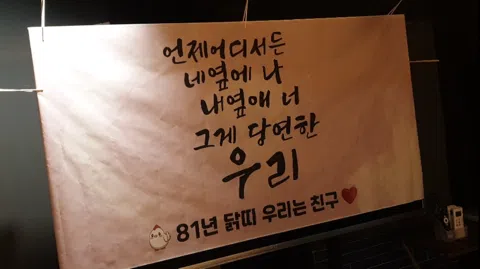 언제어디서든
네옆에 나
내옆애 너
그게 당연한
우리
81년 닭띠 우리는 친구